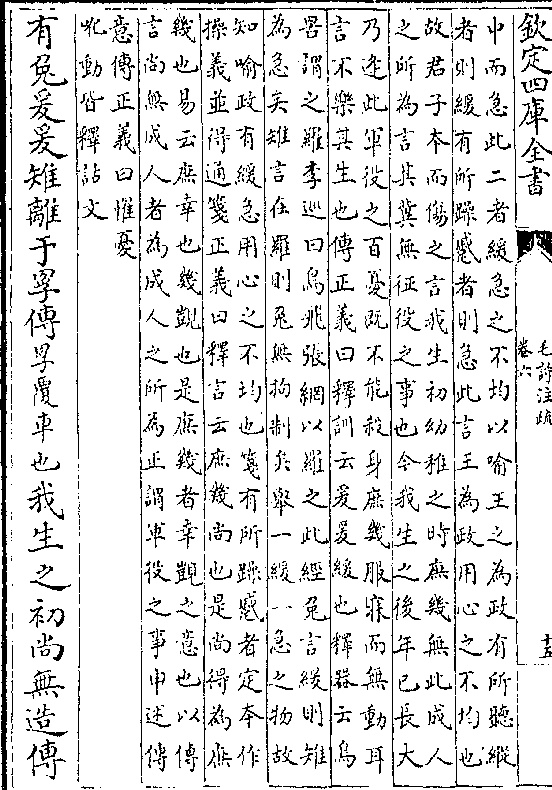 欽定四庫全書
毛詩注疏
卷六
十五
中而急此二者緩急之不均以喻王之為政有所聽縱
者則緩有所躁蹙者則急此言王為政用心之不均也
故君子本而傷之言我生初幼稚之時庶幾無此成人
之所為言其冀無征役之事也今我生之後年已長大
乃逢此軍役之百憂既不能殺身庶幾服寐而無動耳
言不樂其生也傳正義曰釋訓云爰爰緩也釋器云鳥
罟謂之羅李巡曰鳥飛張網以羅之此經兔言緩則雉
為急矣雉言在羅則兔無拘制矣舉一緩一急之物故
知喻政有緩急用心之不均也箋有所躁蹙者定本作
操義並得通箋正義曰釋言云庶幾尚也是尚得為庶
幾也易云庶幸也幾覬也是庶幾者幸覬之意也以傳
言尚無成人者為成人之所為正謂軍役之事申述傳
意傳正義曰惟憂
吪動皆釋詁文
有兔爰爰雉離于罦傳罦覆車也我生之初尚無造傳